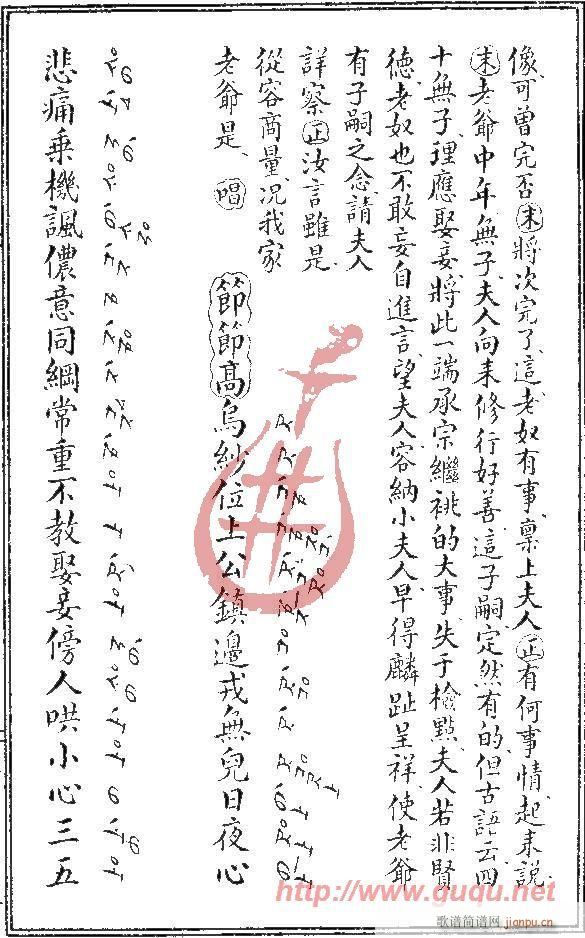 像可曾完否末將次完了這老奴有事禀上夫人正有何事情起来説
末老爺中年無子夫人向来修行好善這子嗣定然有的但古語云四
十無子理應娶妾將此一端承宗繼祧的大事失于檢點夫人若非賢
徳老奴也不敢妄自進言望夫人容納小夫人早得麟趾呈祥使老爺
有子嗣之念請夫人
詳察正汝言雖是
從容商量况我家
老爺是 唱
節節高烏紗位上公鎮邊戎無兒日夜心
悲痛乗機諷儂意同綱常重不教娶妾傍人哄小心三五
http://www.guqu.net
歌谱简谱网
jianpu.cn